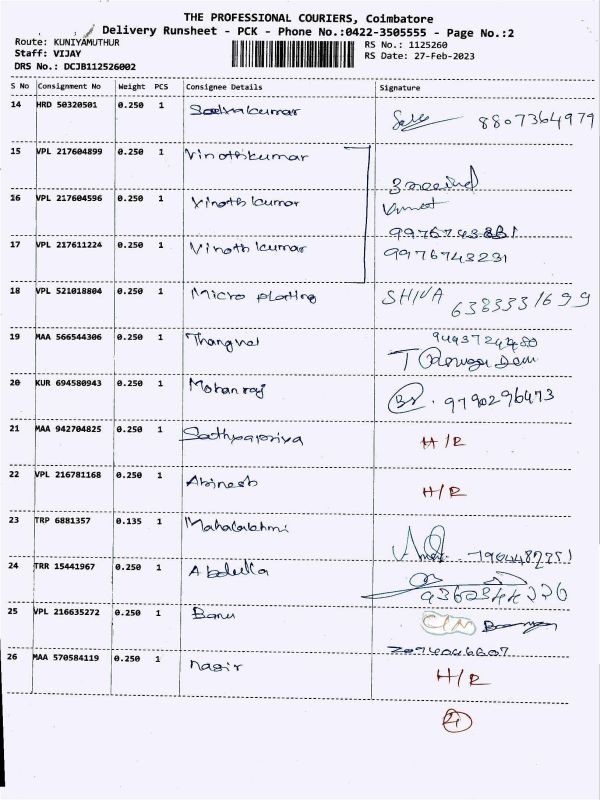 THE PROFESSIONAL COURIERS, Coimbatore
Delivery Runsheet - PCK - Phone No.:0422-3505555 - Page No.:2
Route: KUNIYAMUTHUR RS No.: 1125260
Staff: VIJAY RS Date: 27-Feb-2023
DRS No.: DCJB112526002
S No Consignment No Weight PCS Consignee Details Signature
14 HRD 50320501 0.250 1 Sathyakumar 8807364979
15 VPL 217604899 0.250 1 Vinothkumar
16 VPL 217604596 0.250 1 Vinoth kumar
17 VPL 217611224 0.250 1 Vinoth kumar 9976743231
18 VPL 521018804 0.250 1 Micro plating SHIVA 6383331699
19 MAA 566544306 0.250 1 Thangvel
20 KUR 694580943 0.250 1 Mohanraj 9790296473
21 MAA 942704825 0.250 1 Sathyapriya H/R
22 VPL 216781168 0.250 1 Abinesh H/R
23 TRP 6881357 0.135 1 Mahalakshmi
24 TRR 15441967 0.250 1 Abdulla
25 VPL 216635272 0.250 1 Banu
26 MAA 570584119 0.250 1 nasir H/R